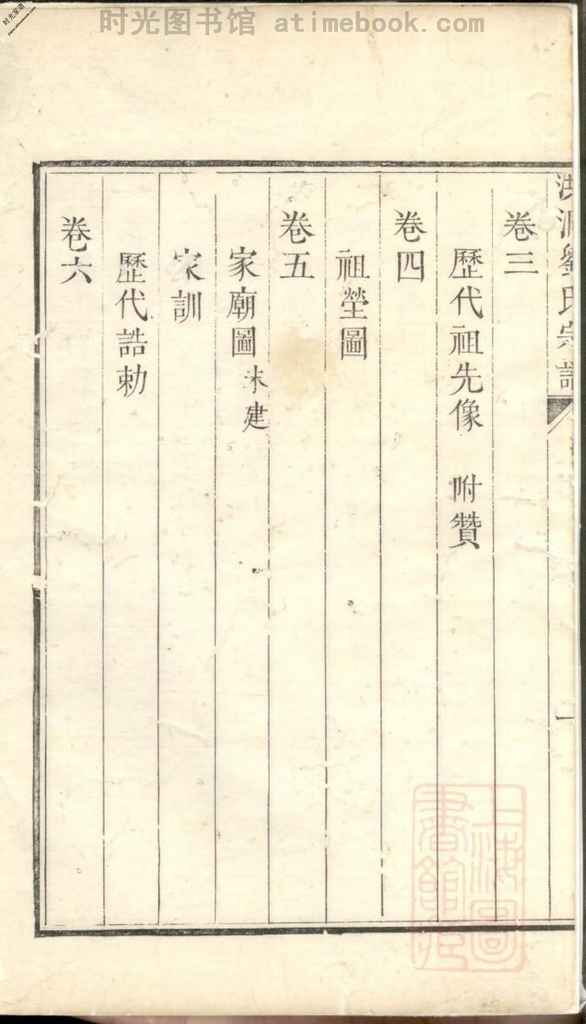 时光图书馆 atimebook.com
洪源劉氏宗譜
一
卷三
歷代祖先像 附贊
卷四
祖塋圖
卷五
家廟圖 未建
家訓
歷代誥勅
卷六
上海圖
書館藏